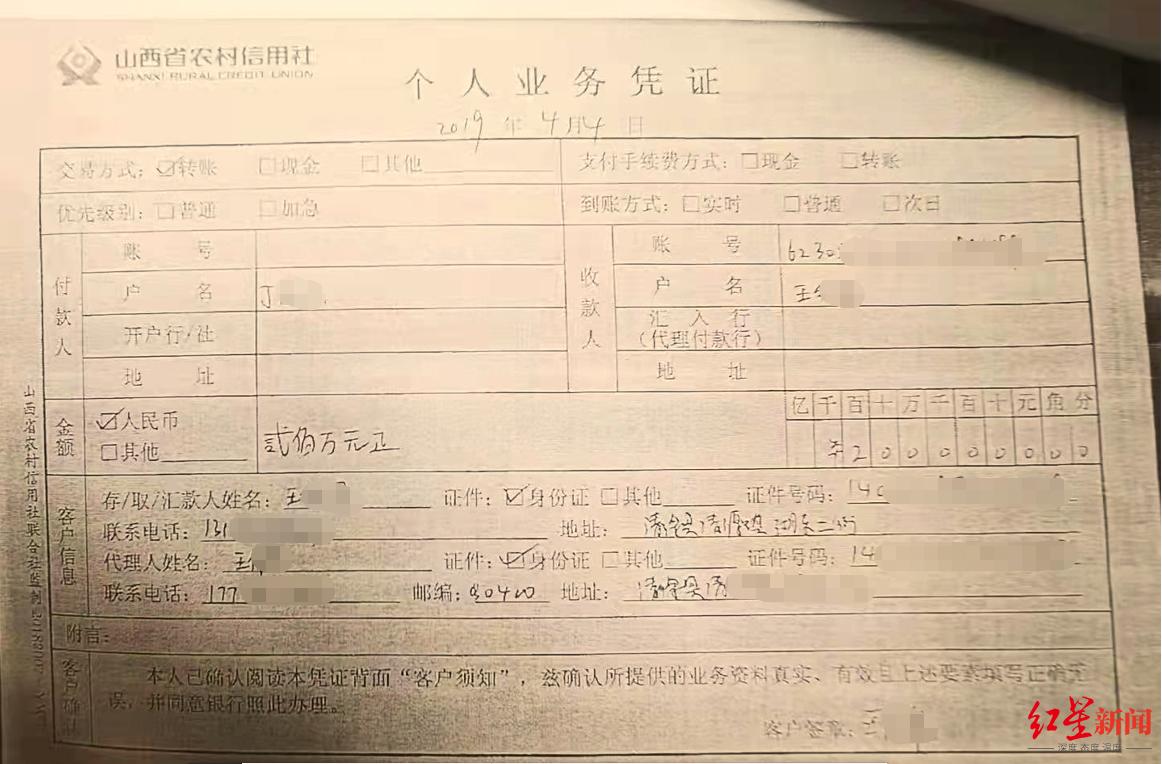 山西省农村信用社
SHANXI RURAL CREDIT UNION
个人业务凭证
2019 年 4 月 4 日
交易方式：☑转账 □现金 □其他 支付手续费方式：□现金 □转账
优先级别：□普通 □加急 到账方式：□实时 □普通 □次日
付款人 账号 收款人 账号 6230
户名 丁 户名 王
开户行/社 汇入行
（代理付款行）
地址 地址
金额 ☑人民币 贰佰万元正 亿千百十万千百十元角分
□其他 200000000
客户信息
存/取/汇款人姓名：王 证件：☑身份证 □其他 证件号码：14
联系电话：131 地址：清徐县清源镇湖东二街
代理人姓名：王 证件：☑身份证 □其他 证件号码：14
联系电话：177 邮编：030400 地址：清徐县清
附言：
客户确认
本人已确认阅读本凭证背面“客户须知”，兹确认所提供的业务资料真实、有效且上述要素填写正确无
误，并同意银行照此办理。
客户签章：王
山西省农村信用社联合社监制
红星新闻
深度 态度 温度